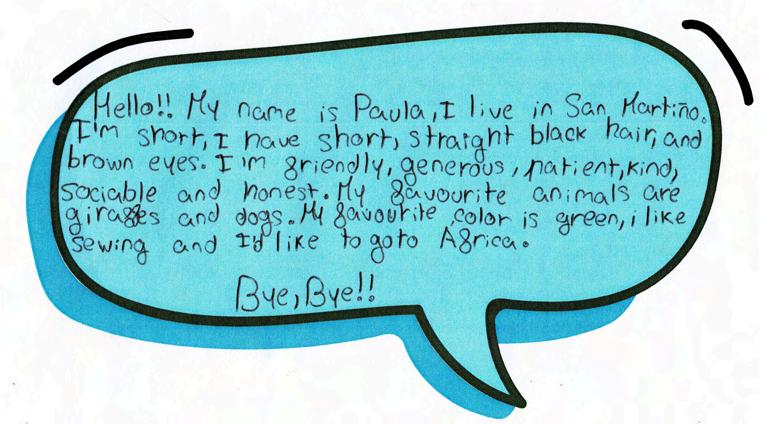 Hello!! My name is Paula, I live in San Martiño.
I'm short, I have short, straight black hair, and
brown eyes. I'm friendly, generous, patient, kind,
sociable and honest. My favourite animals are
giraffes and dogs. My favourite color is green, i like
sewing and I'd like to go to Africa.
Bye, Bye!!